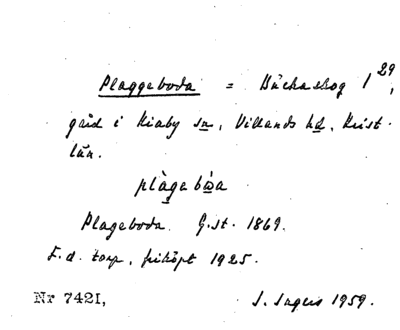 Plaggeboda = Bäckaskog 1²⁹,
gård i Kiaby sn, Villands hd, Krist.
län.
plàgebωa
Plageboda. G.st. 1869.
F.d. torp, friköpt 1925.
Nr 7421, I. Ingers 1959.